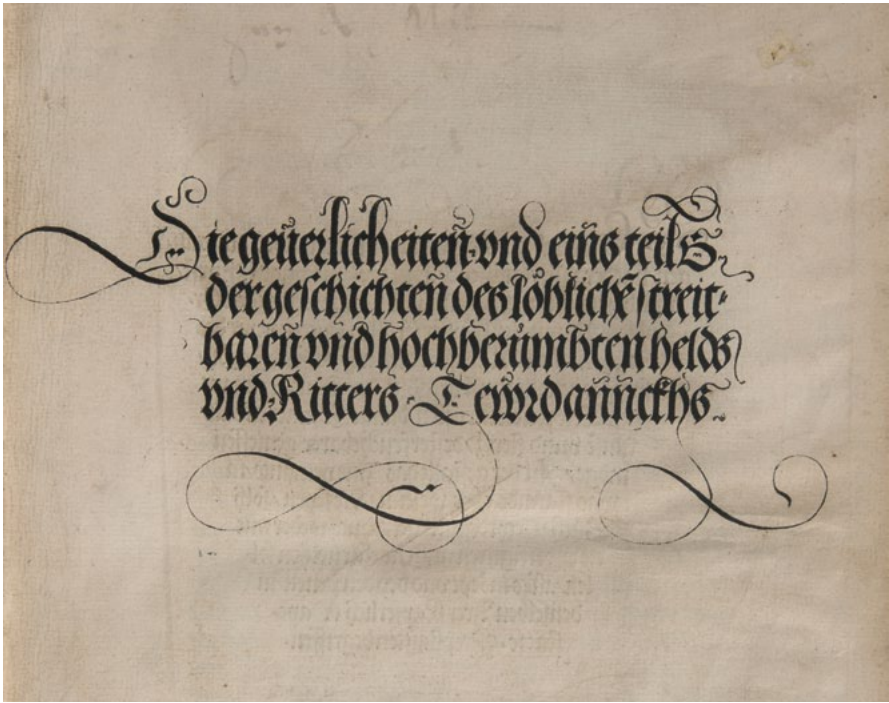 Die geuerlicheiten vnd eins teils
der geschichten des loblichē streit⸗
baren vnd hochberümbten helds
vnd Ritters Tewrdannckhs